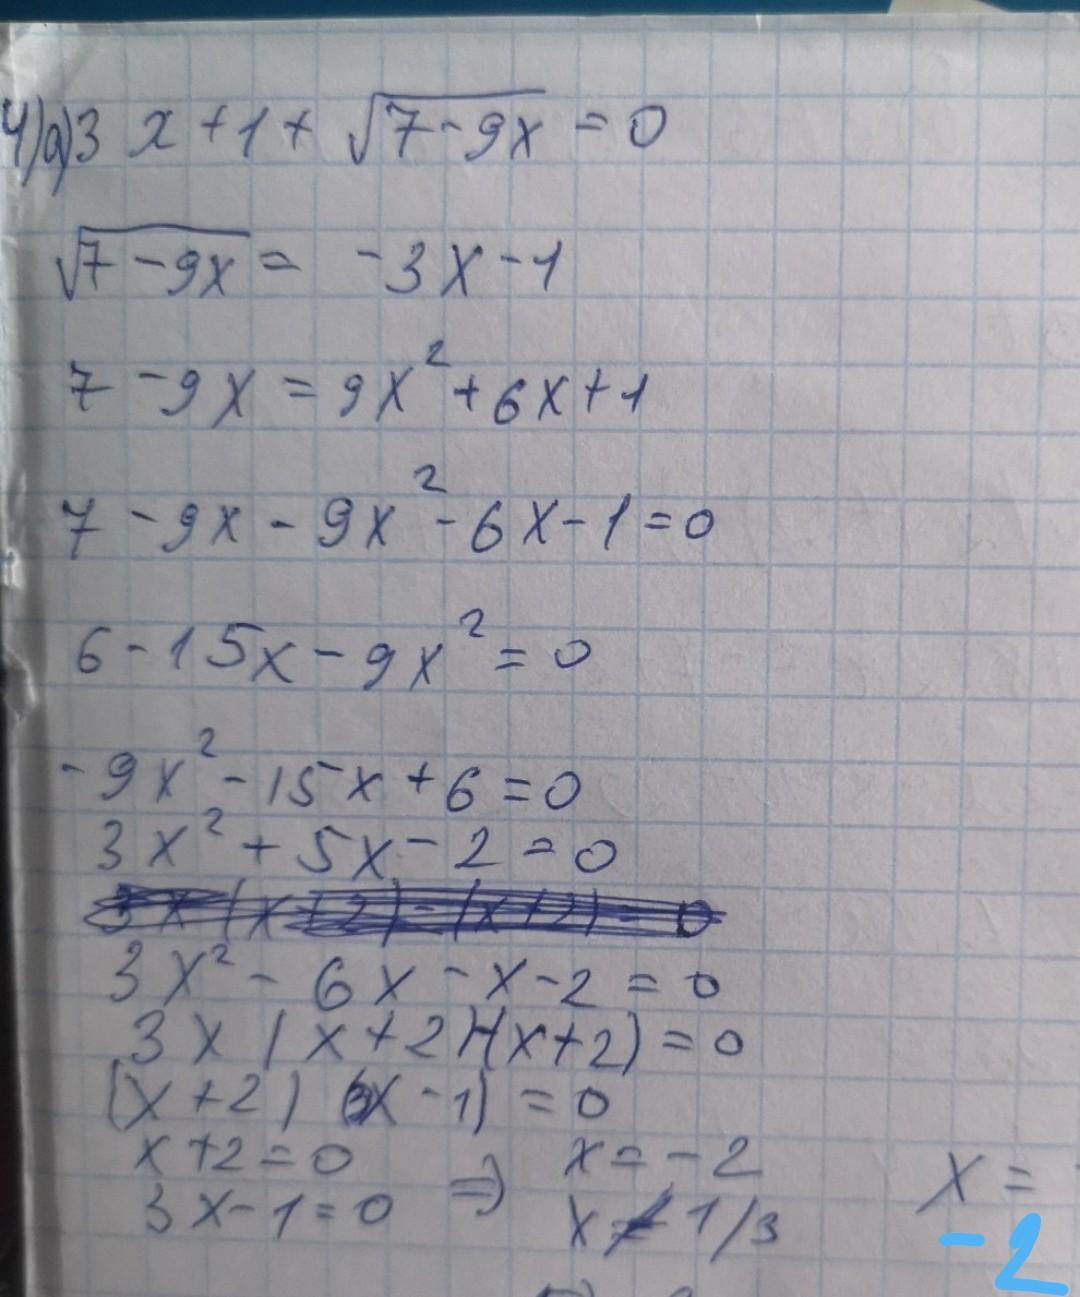 4)а) 3x+1+√(7-9x) = 0
√(7-9x) = -3x-1
7-9x = 9x²+6x+1
7-9x-9x²-6x-1=0
6-15x-9x²=0
-9x²-15x+6=0
3x²+5x-2=0
3x(x+2)-(x+2)=0
3x²-6x-x-2=0
3x(x+2)-(x+2)=0
(x+2)(3x-1)=0
x+2=0 ⇒ x=-2 x=-2
3x-1=0 x≠1/3